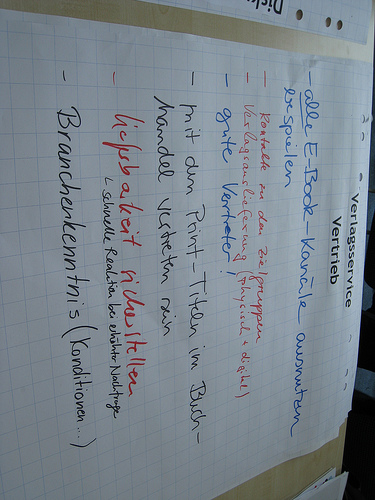 Verlagsservice
Vertrieb
- alle E-Book-Kanäle ausnutzen
bespielen
- Kontakte zu den Zielgruppen
- Verlagsauslieferung (physisch + digital)
- gute Vertreter!
- mit den Print-Titeln im Buch-
handel vertreten sein
- lieferbarkeit sicherstellen
↳ schnelle Reaktion bei erhöhter Nachfrage
- Branchenkenntnis (Konditionen...)
Disku